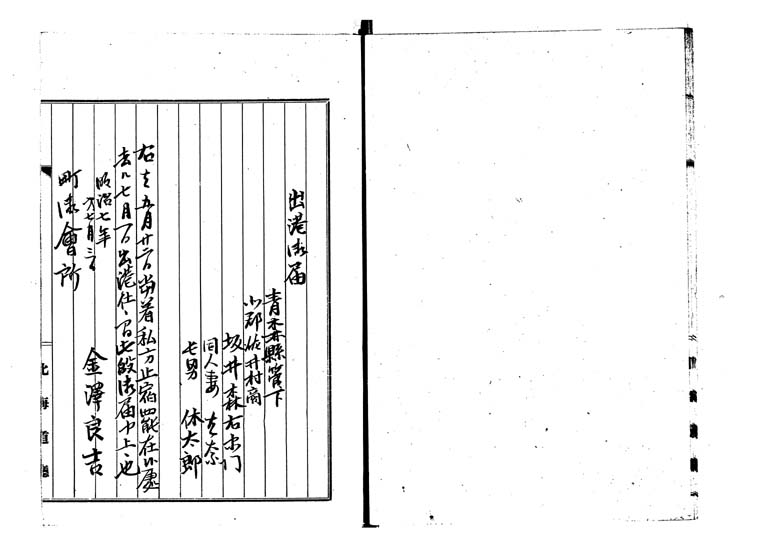 出港御届
青森縣管下
北郡佐井村商
坂井森右衛门
同人妻 きな
七男 休太郎
右者五月廿一日当着私方止宿罷在候處
去ル七月一日出港仕候間此段御届申上候也
明治七年
第七月三日
金澤良吉
町御會所
北海道